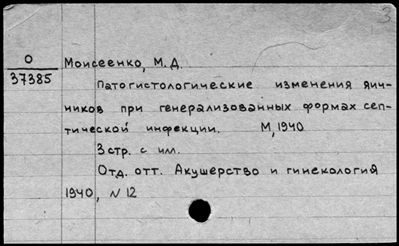 3
О Моисеенко, М.Д.
37385
Патогистологические изменения яич-
ников при генерализованных формах сеп-
тической инфекции. М, 1940
3 стр. с ил.
Отд. отт. Акушерство и гинекология
1940, N 12